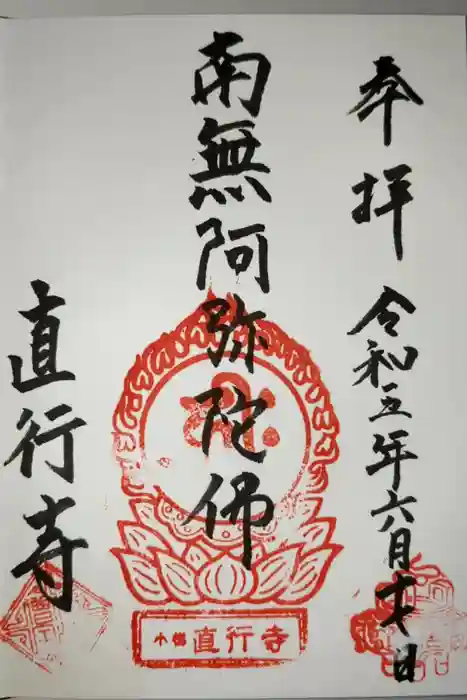 奉拝 令和五年六月 日
南無阿弥陀佛
直行寺
直行寺